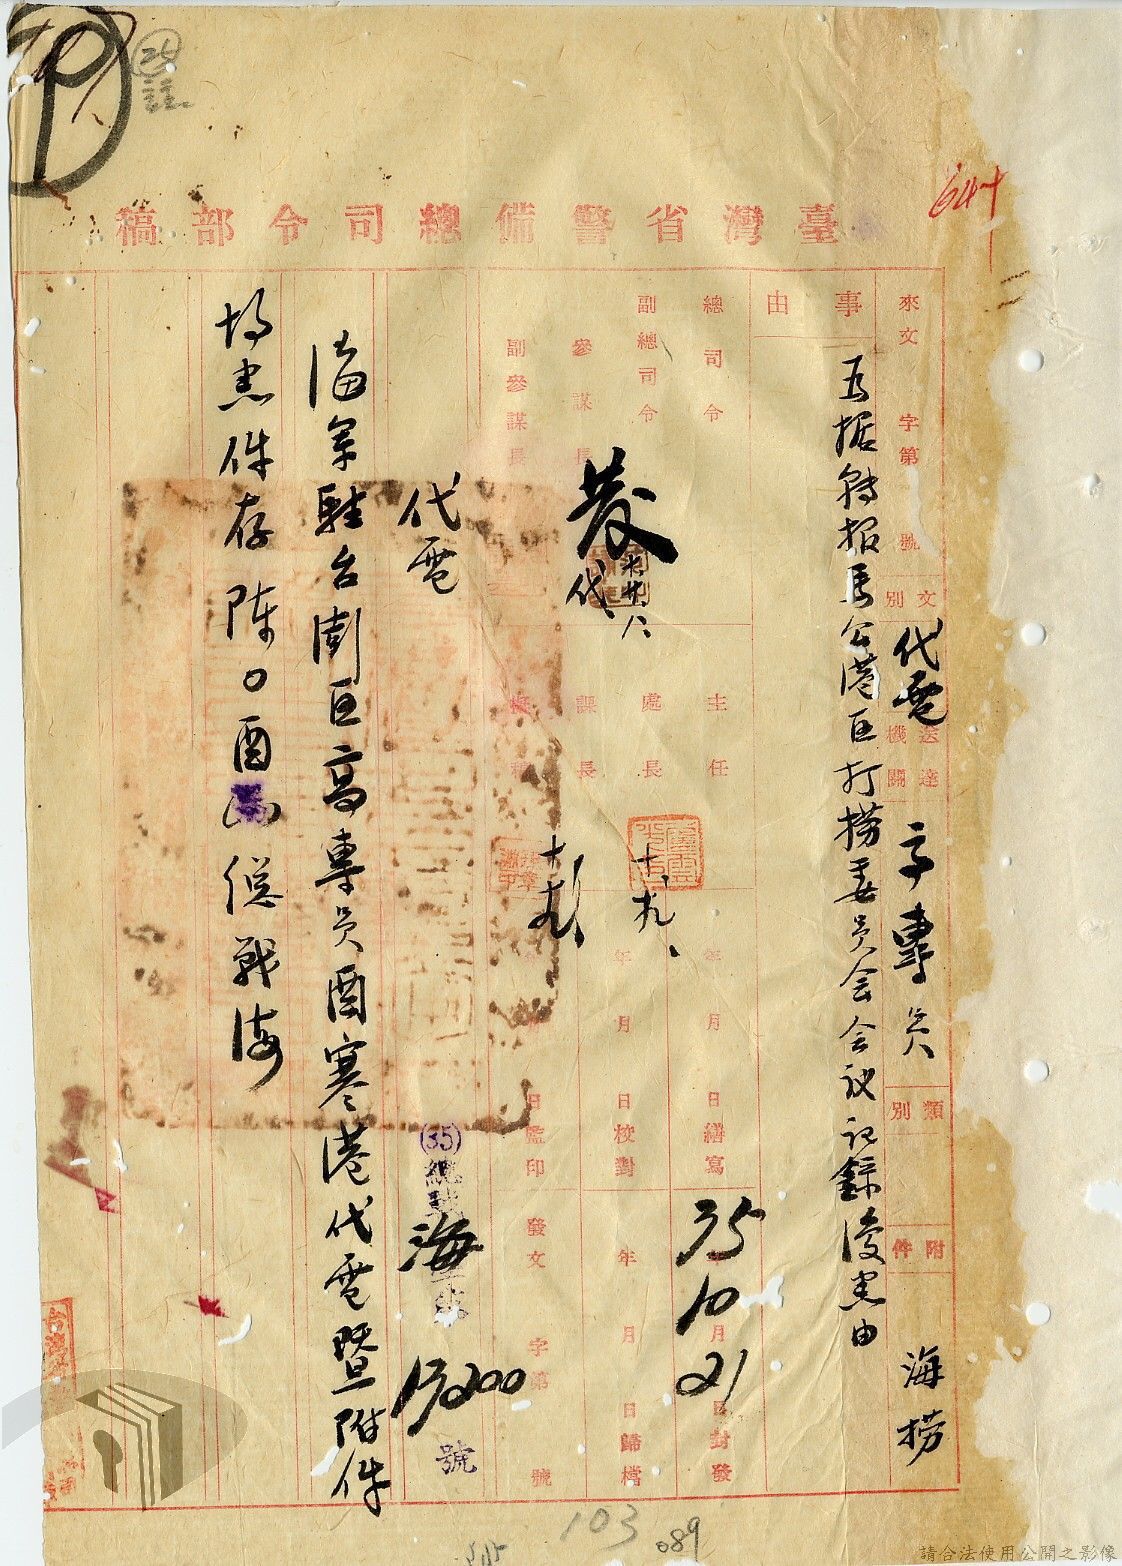 臺灣省警備總司令部稿
來文 字第 號
文別 代電
送達機關 專員
類別
附件
海 撈
事由
為据轉報馬公港區打撈委員会会议记錄復悉由
總司令
副總司令
參謀長
副參謀長
發
代
主任
處長
課長
十、九、
年 月 日繕寫
年 月 日校對
日監印
35 10月21日封發
年 月 日歸檔
發文 字第 號
代電
(35)總戰海字第 13200 號
海軍駐台澎區高專員酉寒港代電暨附件
均悉件存陳〇酉 總戰海
641
103
089
請合法使用公開之影像